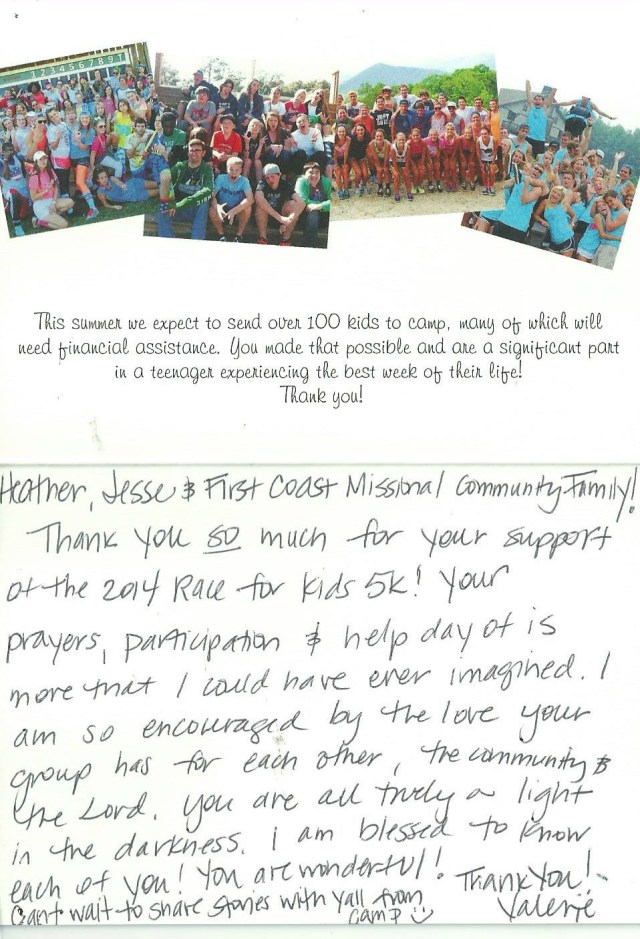 1 2 3 4 5 6 7 8 9 1
This summer we expect to send over 100 kids to camp, many of which will
need financial assistance. You made that possible and are a significant part
in a teenager experiencing the best week of their life!
Thank you!
Heather, Jesse & First Coast Missional Community Family!
Thank you so much for your support
of the 2014 Race for Kids 5k! Your
prayers, participation & help day of is
more that I could have ever imagined. I
am so encouraged by the love your
group has for each other, the community &
the Lord. You are all truly a light
in the darkness. I am blessed to know
each of you! You are wonderful! Thank You!
Cant wait to share stories with yall from
camp Valerie